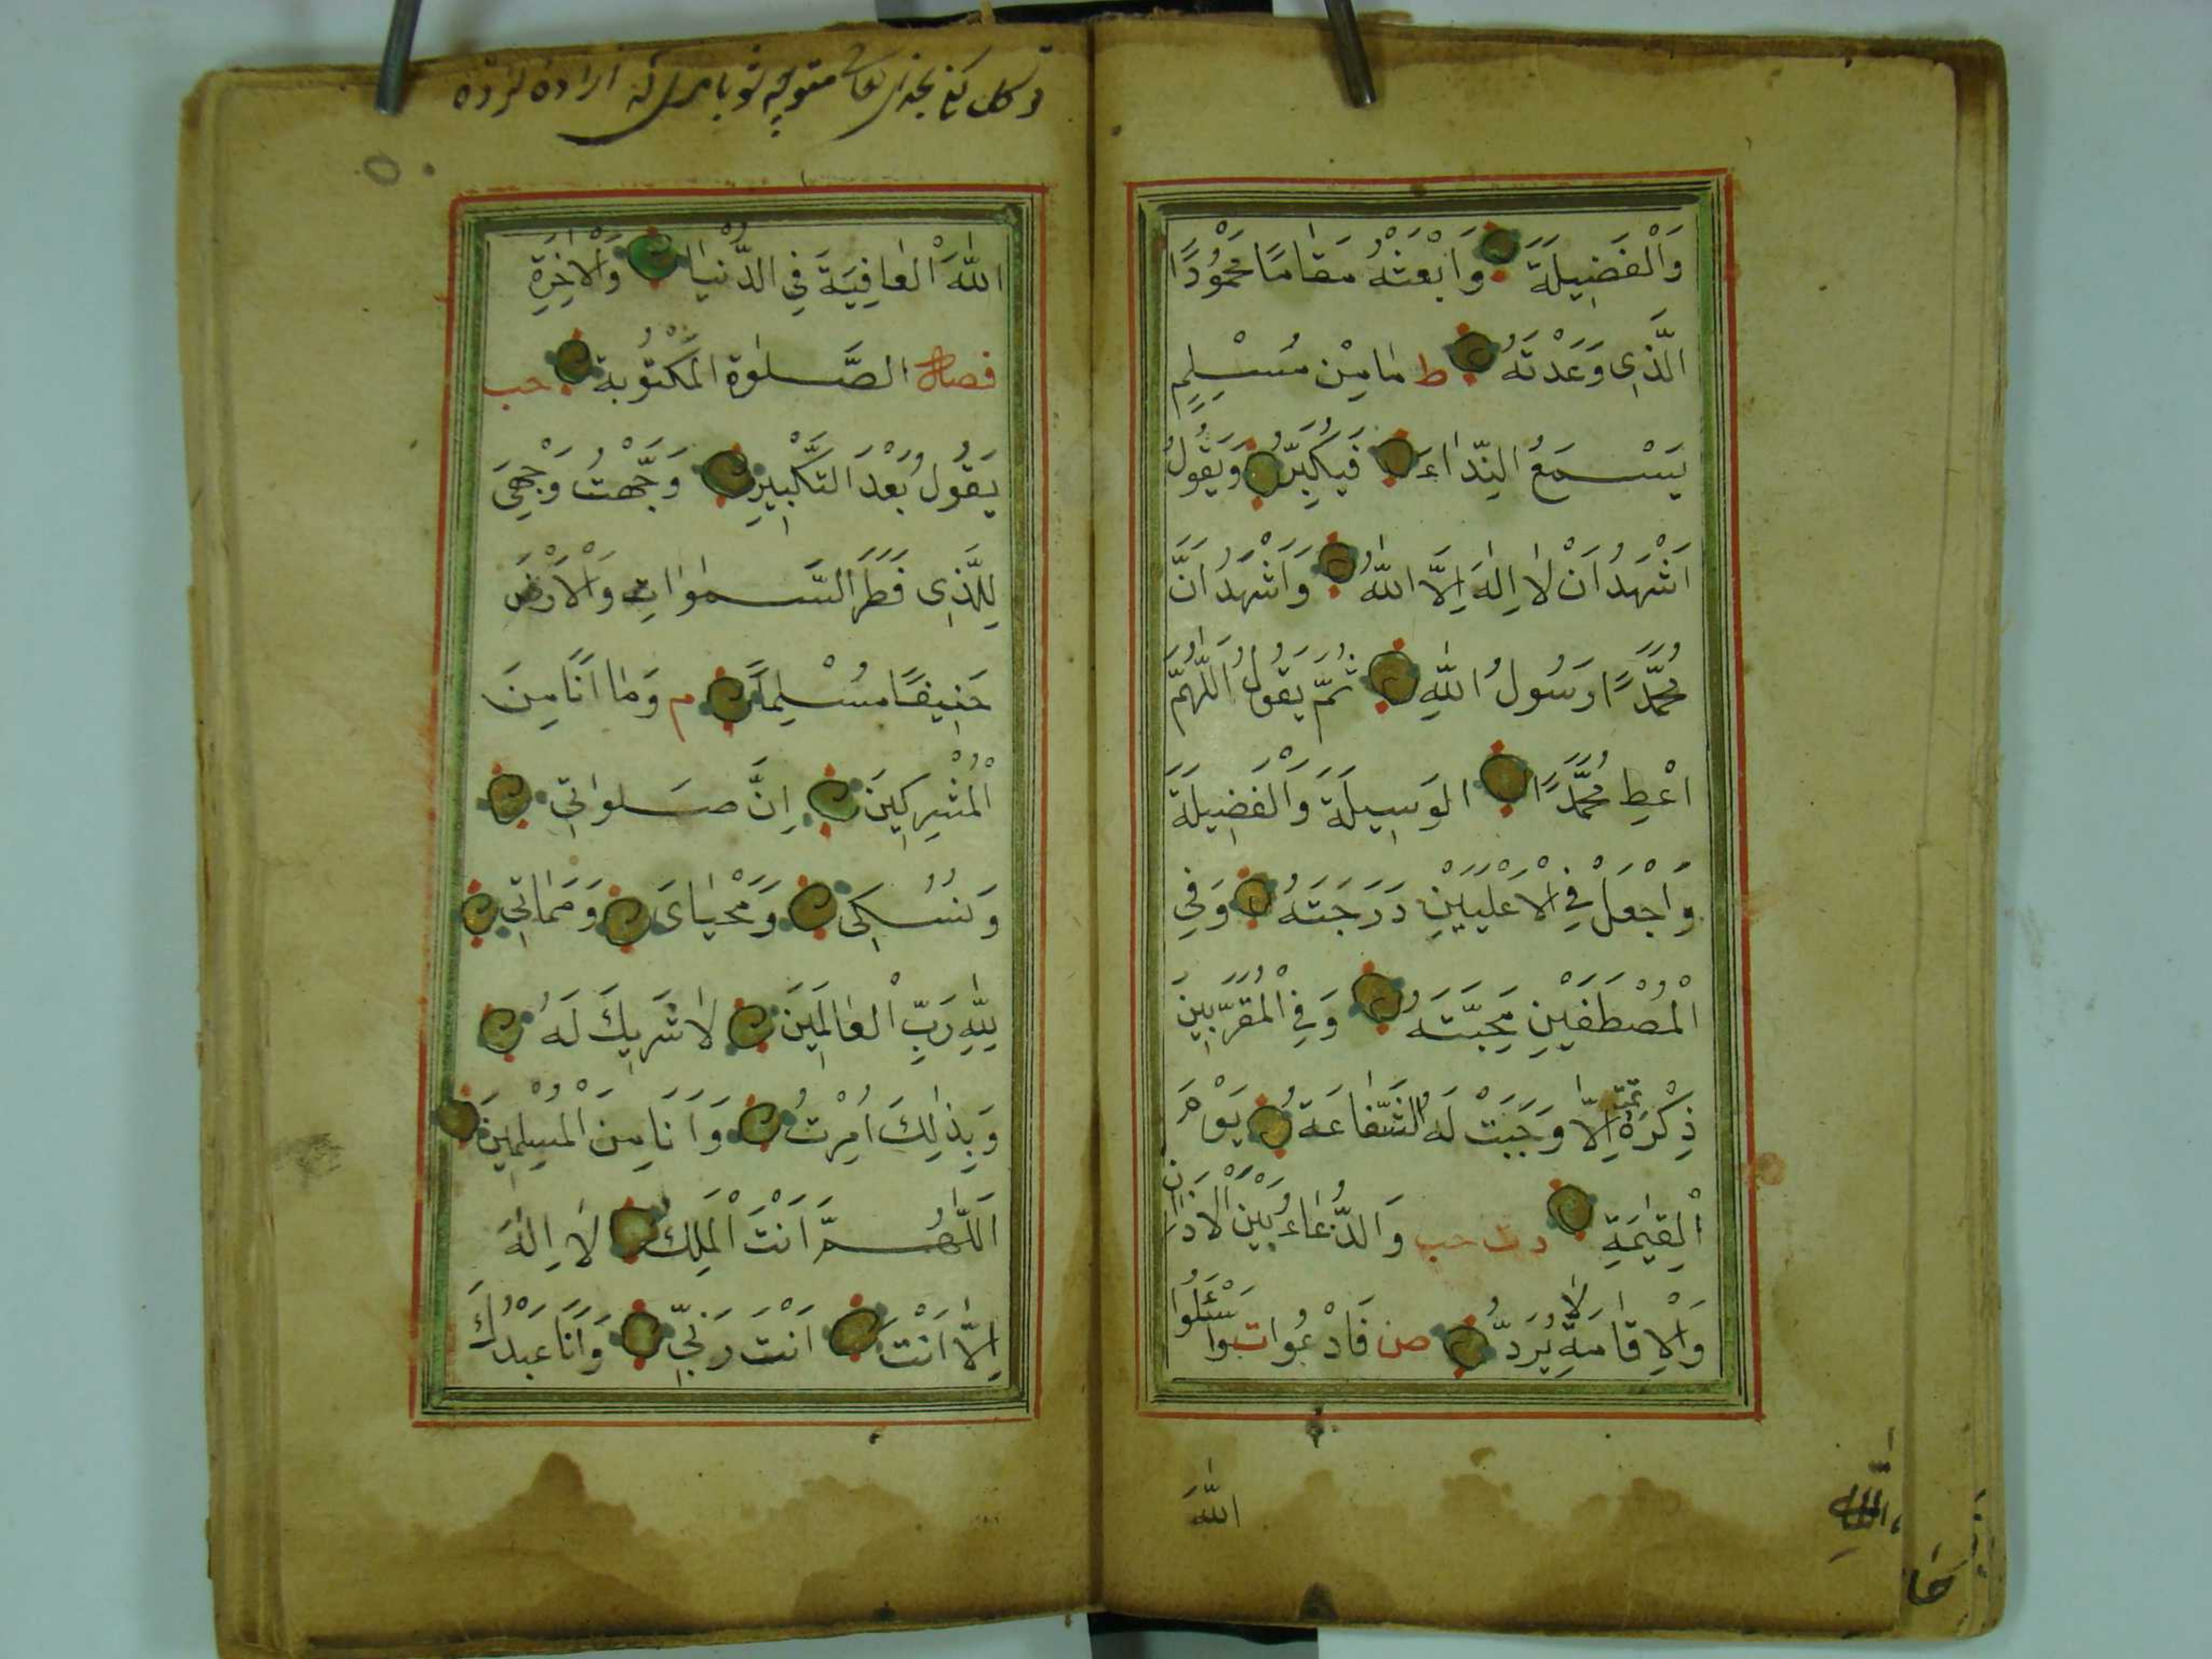 وَالْفَضِيلَةَ وَابْعَثْهُ مَقَامًا مَحْمُودًا
الَّذِي وَعَدْتَهُ ط مَا مِنْ مُسْلِمٍ
يَسْمَعُ النِّدَاءَ فَيُكَبِّرُ وَيَقُولُ
اَشْهَدُ اَنْ لَا اِلٰهَ اِلَّا اللّٰهُ وَاَشْهَدُ اَنَّ
مُحَمَّدًا رَسُولُ اللّٰهِ ثُمَّ يَقُولُ اَللّٰهُمَّ
اَعْطِ مُحَمَّدًا الوَسِيلَةَ وَالْفَضِيلَةَ
وَاجْعَلْ فِي الْاَعْلَيَيْنِ دَرَجَتَهُ وَفِي
الْمُصْطَفَيْنِ مَحَبَّتَهُ وَفِي الْمُقَرَّبِينَ
ذِكْرَهُ اِلَّا وَجَبَتْ لَهُ الشَّفَاعَةُ يَوْمَ
الْقِيٰمَةِ حب وَالدُّعَاءُ بَيْنَ الْاَذَانِ
وَالْاِقَامَةِ لَا يُرَدُّ ت ص فَادْعُوا وَاسْئَلُوا
اللّٰهَ
توكل بخداى متوجه شو اراده كرده
اللّٰهَ الْعَافِيَةَ فِي الدُّنْيَا وَالْاٰخِرَةِ
الصَّلٰوة الْمَكْتُوبة حب
يَقُولُ بَعْدَ التَّكْبِيرِ وَجَّهْتُ وَجْهِيَ
لِلَّذِي فَطَرَ السَّمٰوَاتِ وَالْاَرْضَ
حَنِيفًا مُسْلِمًا م وَمَا اَنَا مِنَ
الْمُشْرِكِينَ اِنَّ صَلَوَاتِي
وَنُسُكِي وَمَحْيَايَ وَمَمَاتِي
لِلّٰهِ رَبِّ الْعَالَمِينَ لَا شَرِيكَ لَهُ
وَبِذٰلِكَ اُمِرْتُ وَاَنَا مِنَ الْمُسْلِمِينَ
اَللّٰهُمَّ اَنْتَ الْمَلِكُ لَا اِلٰهَ
اِلَّا اَنْتَ اَنْتَ رَبِّي وَاَنَا عَبْدُكَ